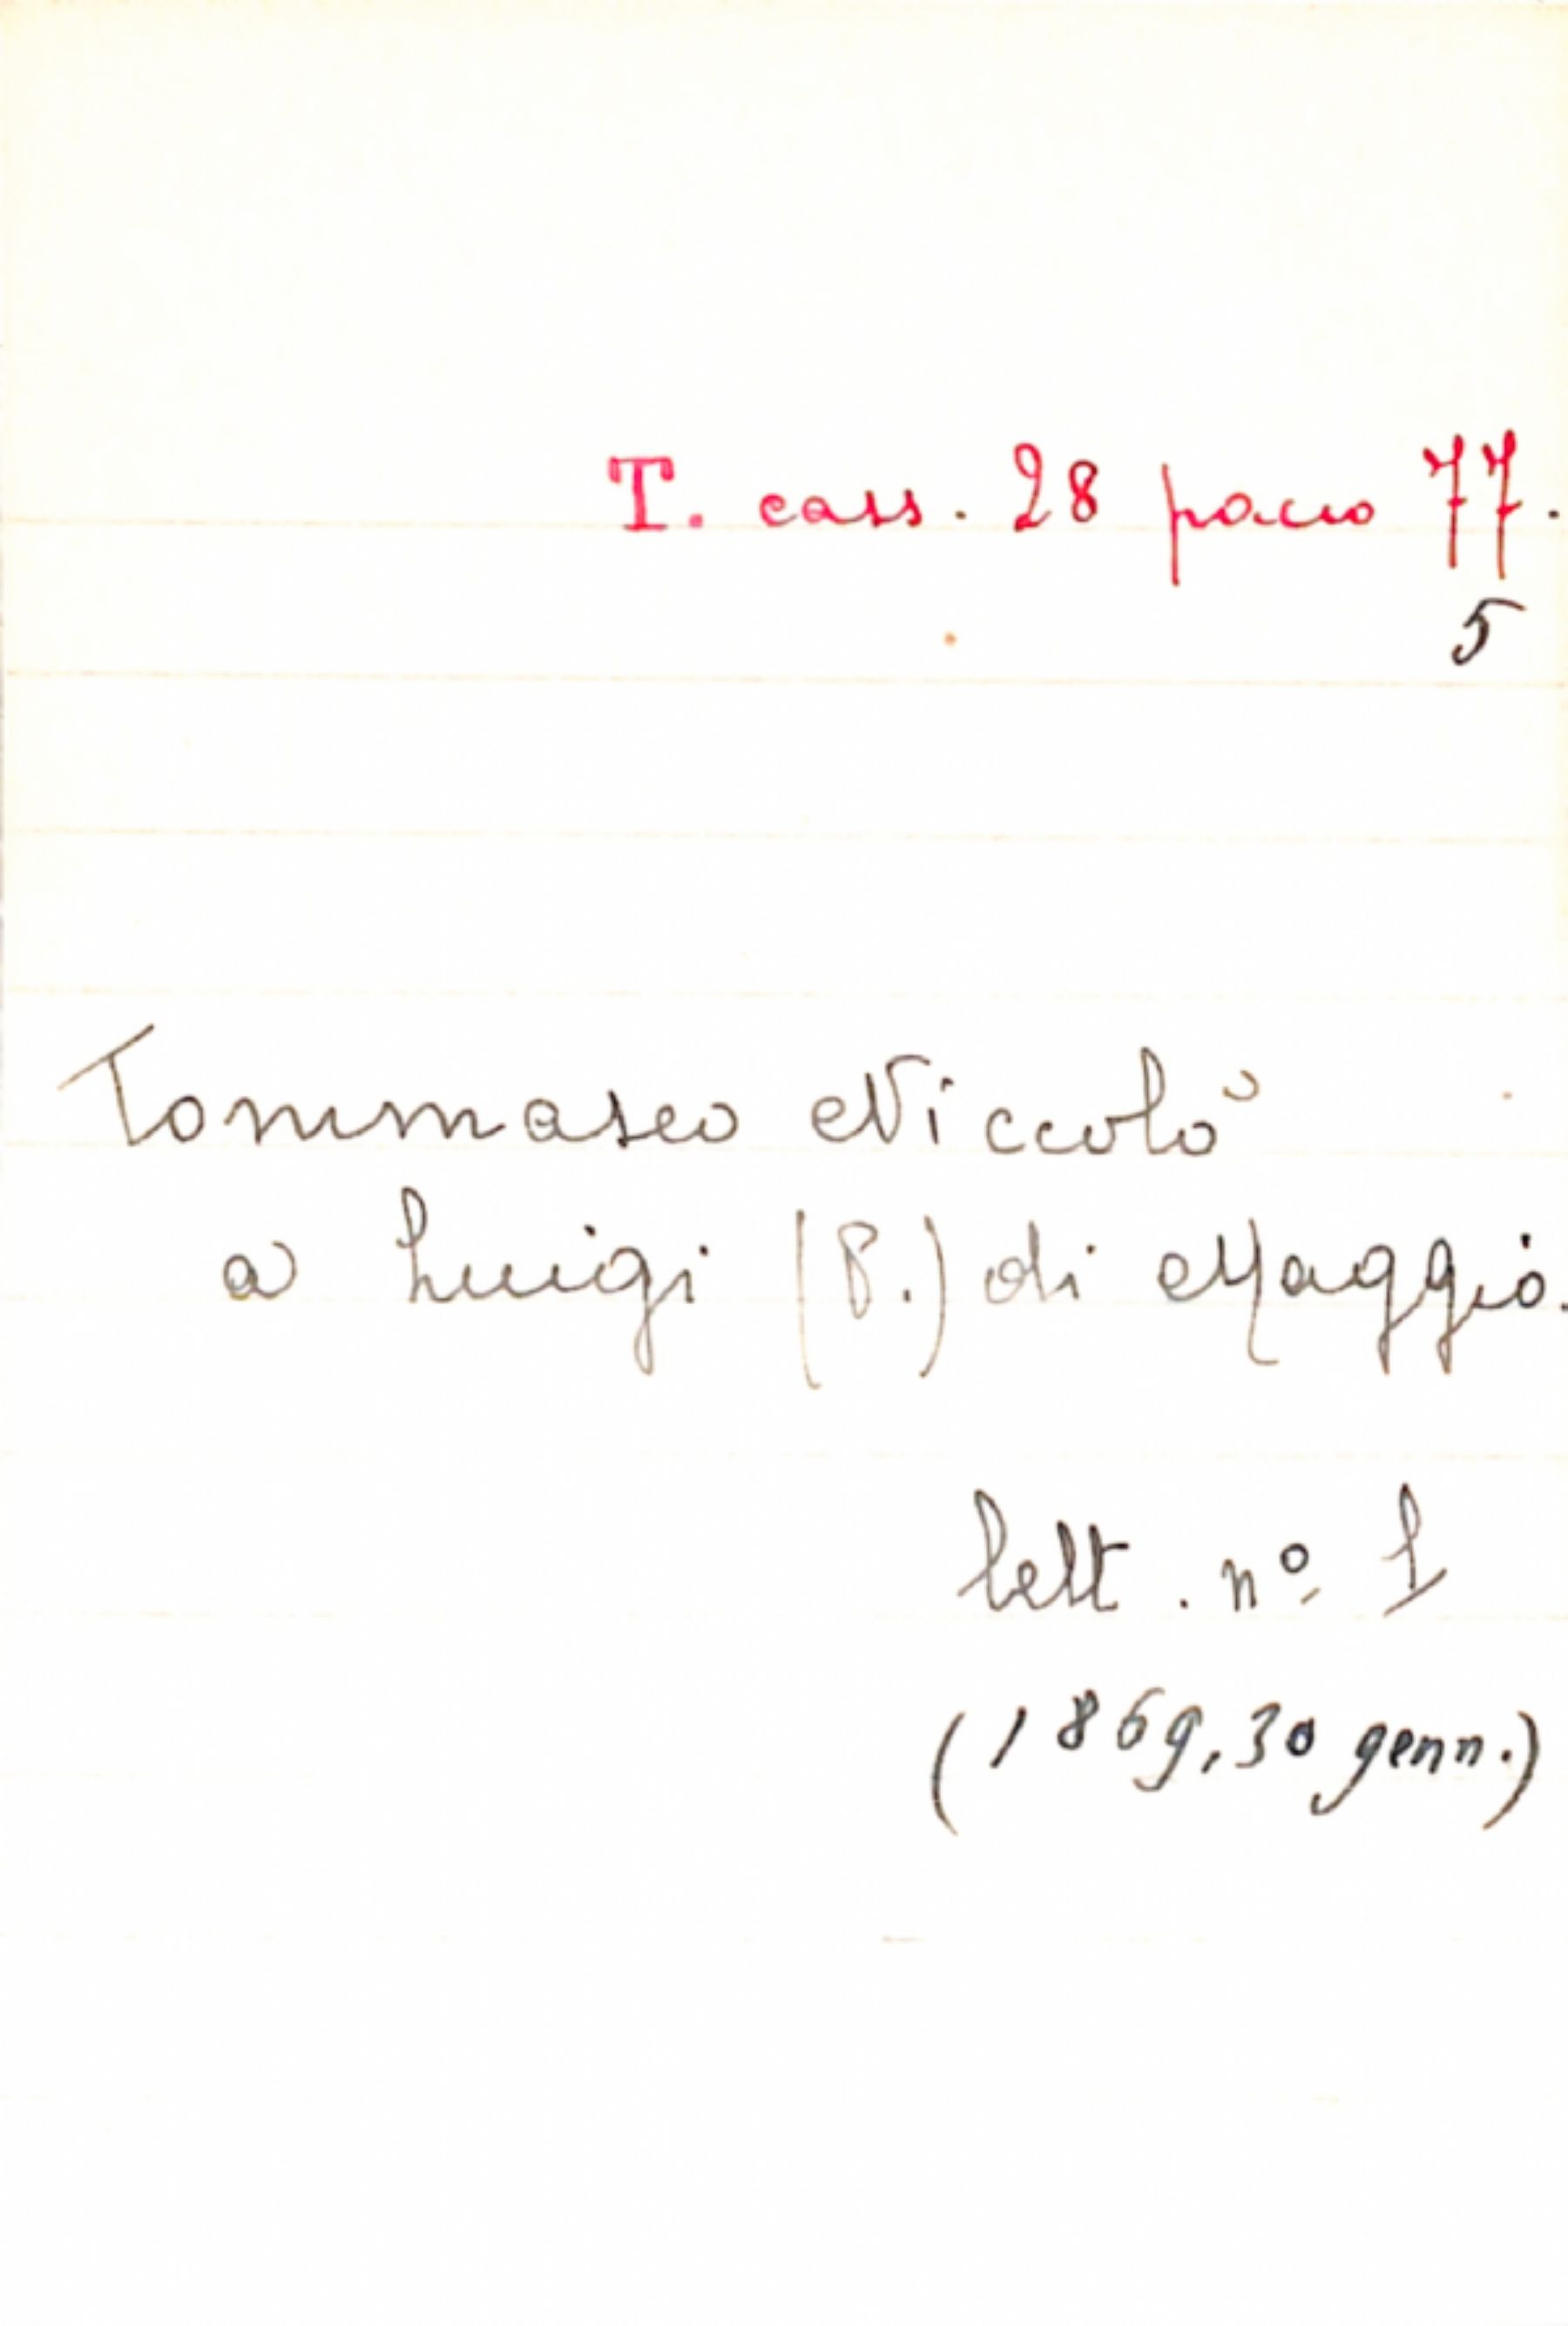 T. cass. 28 pacco 77.
5
Tommaseo Niccolò
a Luigi (P.) di Maggio.
lett. nº 1
(1869, 30 genn.)